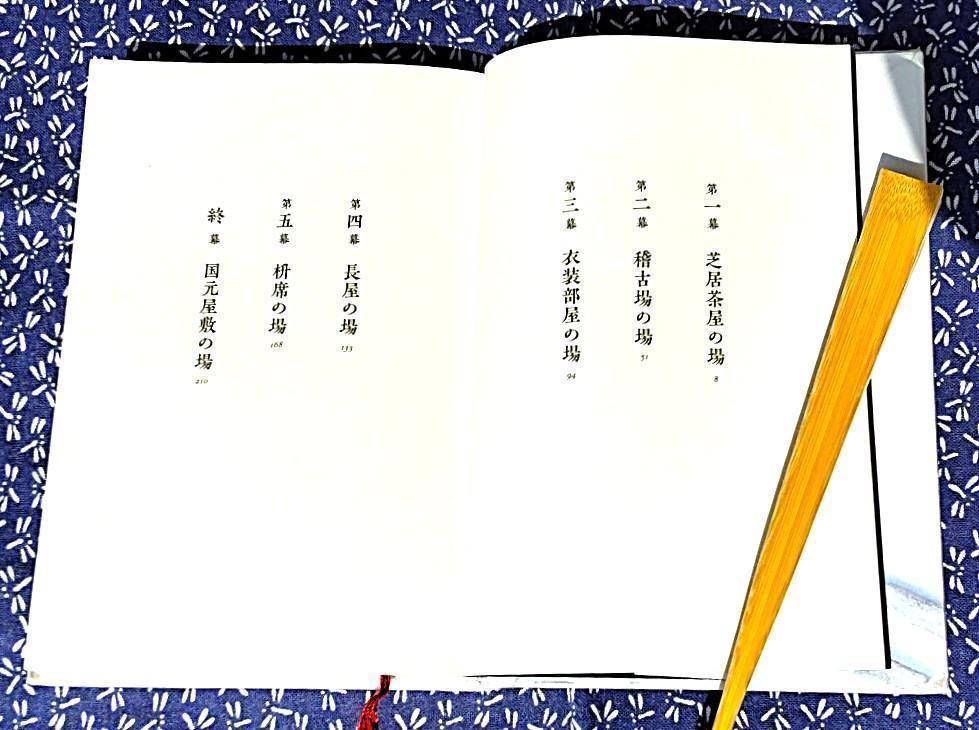 第一幕 芝居茶屋の場 8
第二幕 稽古場の場 51
第三幕 衣装部屋の場 94
第四幕 長屋の場 133
第五幕 枡席の場 168
終幕 国元屋敷の場 210